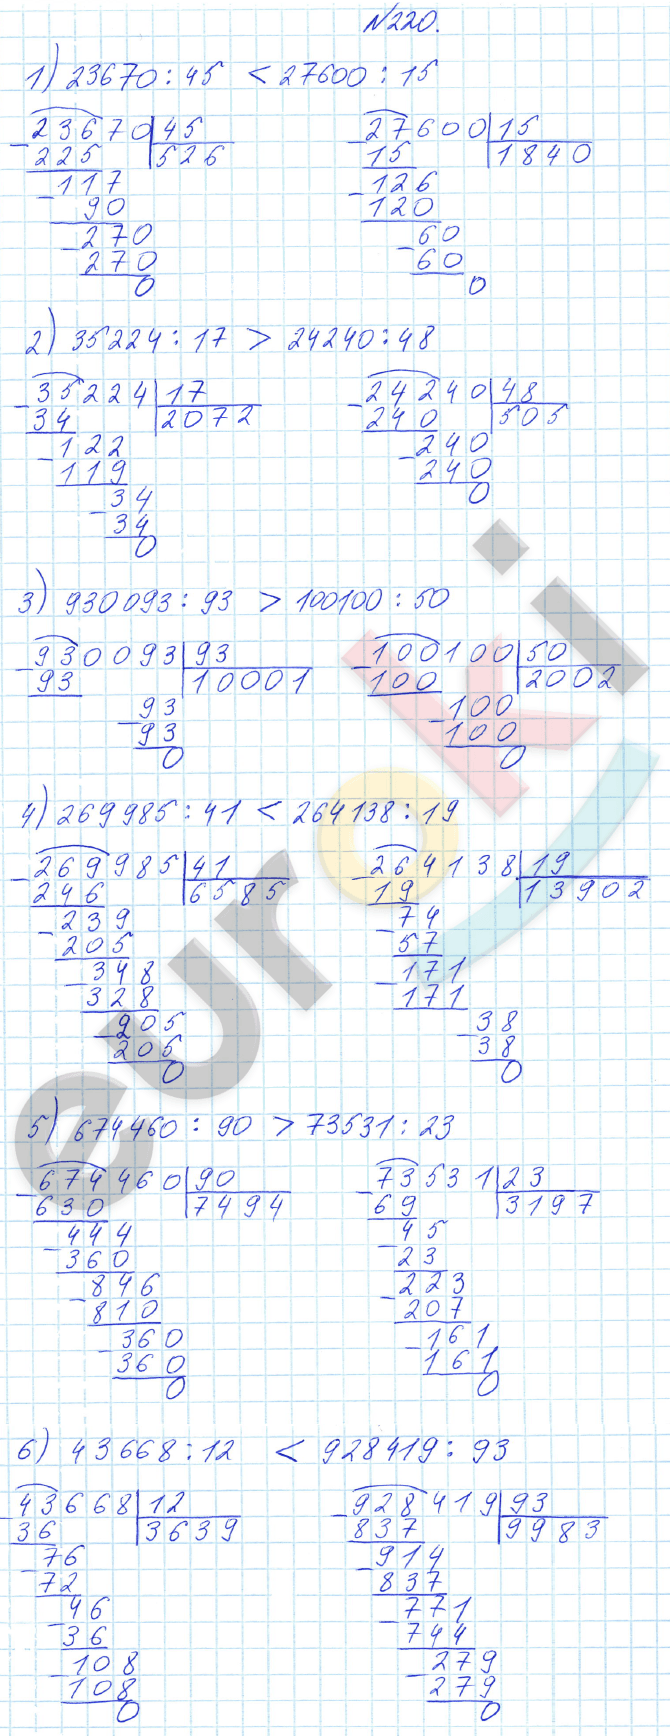 №220.
1) 23670 : 45 < 27600 : 15
23670 45
- 225 526
- 117
90
- 270
270
0
27600 15
- 15 1840
- 126
120
- 60
60
0
2) 35224 : 17 > 24240 : 48
35224 17
- 34 2072
- 122
119
- 34
34
0
24240 48
- 240 505
- 240
240
0
3) 930093 : 93 > 100100 : 50
930093 93
- 93 10001
- 93
93
0
100100 50
- 100 2002
- 100
100
0
4) 269985 : 41 < 264138 : 19
269985 41
- 246 6585
- 239
205
- 348
328
- 205
205
0
264138 19
- 19 13902
- 74
57
- 171
171
- 38
38
0
5) 674460 : 90 > 73531 : 23
674460 90
- 630 7494
- 444
360
- 846
810
- 360
360
0
73531 23
- 69 3197
- 45
23
- 223
207
- 161
161
0
6) 43668 : 12 < 928419 : 93
43668 12
- 36 3639
- 76
72
- 46
36
- 108
108
0
928419 93
- 837 9983
- 914
837
- 771
744
- 279
279
0
euroki